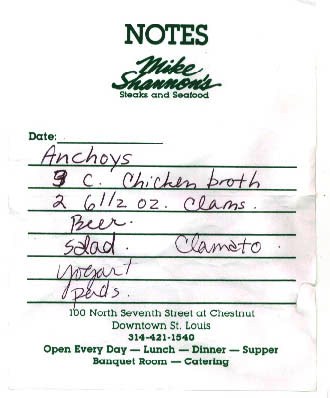 NOTES
Mike
Shannon's
Steaks and Seafood
Date:
Anchoys
3 C. Chicken broth
2 6 1/2 oz. Clams.
Beer.
Salad. Clamato.
yogart
pads.
100 North Seventh Street at Chestnut
Downtown St. Louis
314-421-1540
Open Every Day — Lunch — Dinner — Supper
Banquet Room — Catering